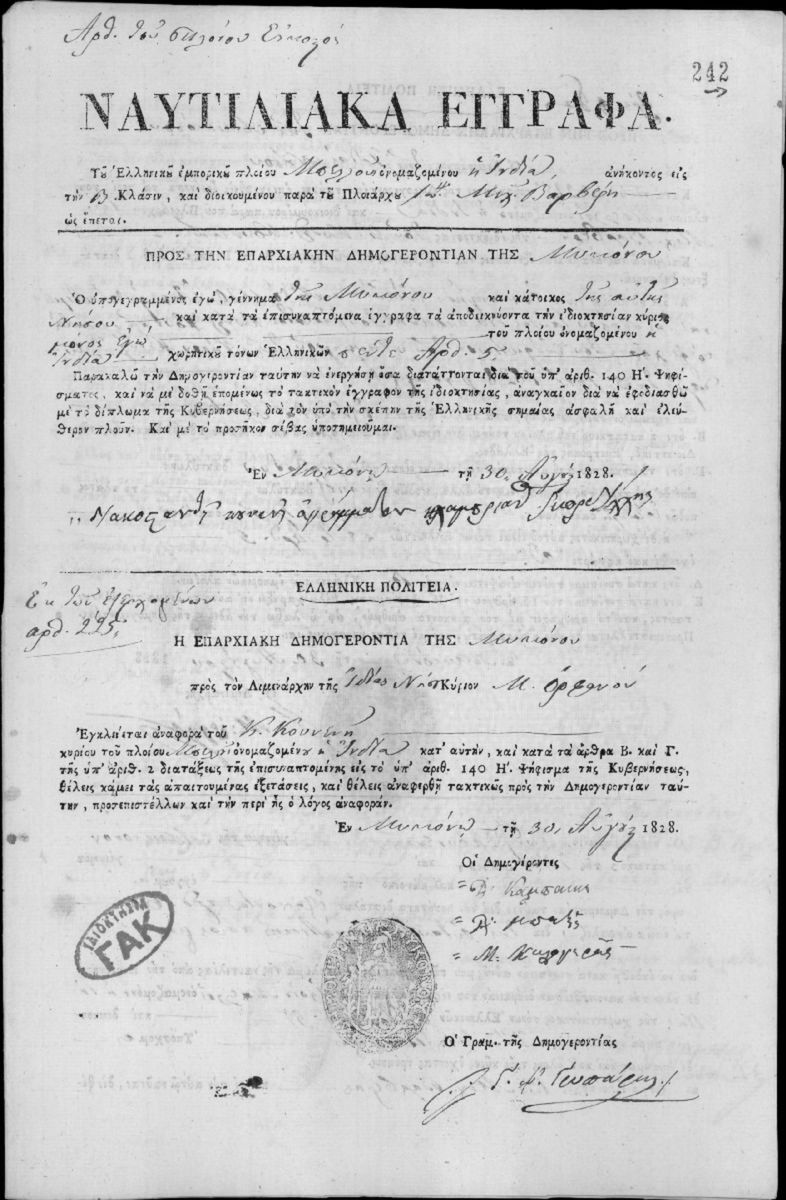 Αρθ. τοῦ πλοίου Εἴκοσι
242
ΝΑΥΤΙΛΙΑΚΑ ΕΓΓΡΑΦΑ.
Τῦ Ἑλληνικῦ ἐμπορικῦ πλοίου ὀνομαζομένου ἡ Ἰνδία, ἀνήκοντος εἰς
τὴν Β. Κλάσιν, καὶ διοικουμένου παρὰ τῦ Πλοιάρχυ Μιχ. Βαρβέρη
ὡς ἕπεται.
ΠΡΟΣ ΤΗΝ ΕΠΑΡΧΙΑΚΗΝ ΔΗΜΟΓΕΡΟΝΤΙΑΝ ΤΗΣ Μυκόνου
Ὁ ὑπογεγραμμένος ἐγὼ, γέννημα τῆς Μυκόνου καὶ κάτοικος τῆς αὐτῆς
Νήσου καὶ κατὰ τὰ ἐπισυναπτόμενα ἔγγραφα τὰ ἀποδεικνύοντα τὴν ἰδιοκτησίαν κύριος
μόνος ἐγὼ τοῦ πλοίου ὀνομαζομένου ἡ
Ἰνδία χωρητικῦ τόνων Ἑλληνικῶν πέντε Αρθ. 5
Παρακαλῶ τὴν Δημογεροντίαν ταύτην νὰ ἐνεργήσῃ ὅσα διατάττονται διὰ τοῦ ὑπ' ἀριθ. 140 Η'. Ψηφί-
σματος, καὶ νὰ μὲ δοθῇ ἑπομένως τὸ τακτικὸν ἔγγραφον τῆς ἰδιοκτησίας, ἀναγκαῖον διὰ νὰ ἐφοδιασθῶ
μὲ τὸ δίπλωμα τῆς Κυβερνήσεως, διὰ τὸν ὑπὸ τὴν σκέπην τῆς Ἑλληνικῆς σημαίας ἀσφαλῆ καὶ ἐλεύ-
θερον πλοῦν. Καὶ μὲ τὸ προσῆκον σέβας ὑποσημειοῦμαι.
Ἐν Μυκόνῳ τῇ 30 Αὐγού 1828.
Ἐκ τῶν ἐξερχομένων
αρθ. 225,
ΕΛΛΗΝΙΚΗ ΠΟΛΙΤΕΙΑ.
Η ΕΠΑΡΧΙΑΚΗ ΔΗΜΟΓΕΡΟΝΤΙΑ ΤΗΣ Μυκόνου
πρὸς τὸν Λιμενάρχην τῆς Ἰδίας Νήσου Κύριον Μ. Ὀρφανοῦ
Ἐγκλείεται ἀναφορὰ τοῦ Κ. Κουνενῆ
κυρίου τοῦ πλοίου ὀνομαζομένυ ἡ Ἰνδία κατ' αὐτὴν, καὶ κατὰ τὰ ἄρθρα Β. καὶ Γ.
τῆς ὑπ' ἀριθ. 2 διατάξεως τῆς ἐπισυναπτομένης εἰς τὸ ὑπ' ἀριθ. 140 Η'. Ψήφισμα τῆς Κυβερνήσεως,
θέλεις κάμει τὰς ἀπαιτουμένας ἐξετάσεις, καὶ θέλεις ἀναφερθῇ τακτικῶς πρὸς τὴν Δημογεροντίαν ταύ-
την, προσεπιστέλλων καὶ τὴν περὶ ἧς ὁ λόγος ἀναφοράν.
Ἐν Μυκόνῳ τῇ 30, Αὐγού 1828.
Οἱ Δημογέροντες
Καμπάνης
μπαῆς
Μ. Καλογερᾶς
ΙΔΙΟΚΤΗΣΙΑ
ΓΑΚ
Ὁ Γραμ. τῆς Δημογεροντίας